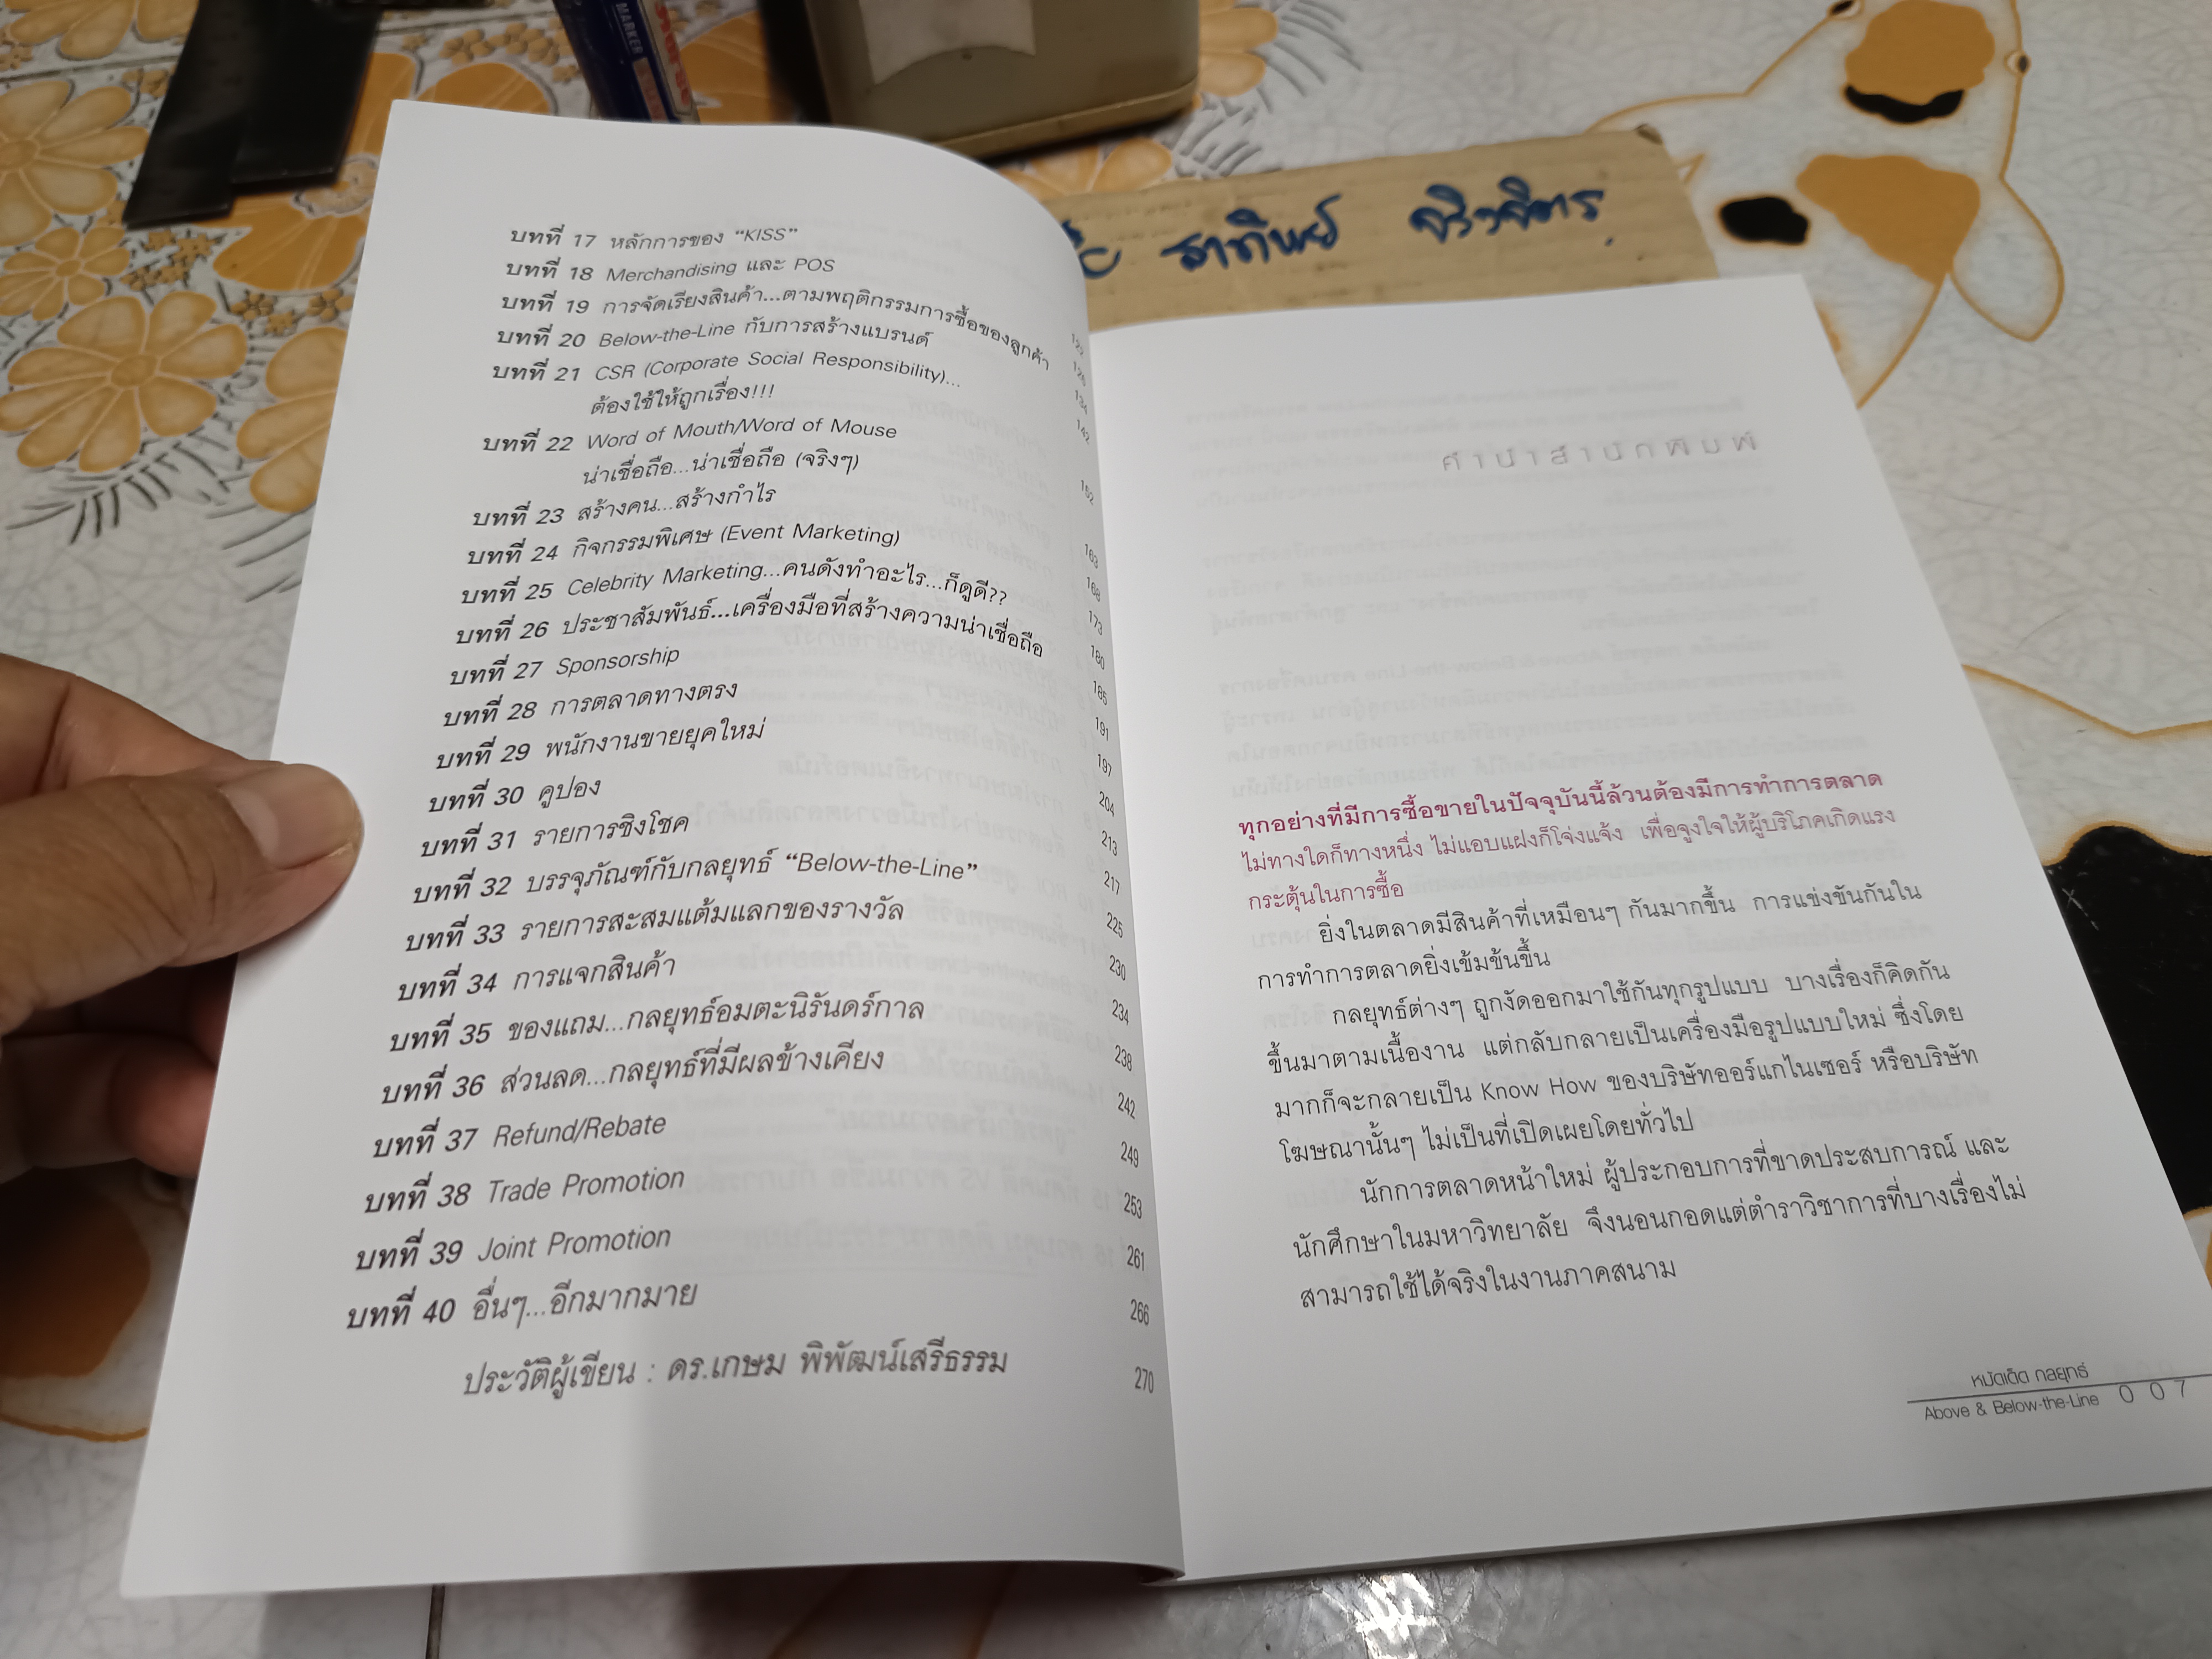 MARKER
ธาทิพย์
บทที่ 17 หลักการของ “KISS” 122
บทที่ 18 Merchandising และ POS 126
บทที่ 19 การจัดเรียงสินค้า...ตามพฤติกรรมการซื้อของลูกค้า 134
บทที่ 20 Below-the-Line กับการสร้างแบรนด์ 142
บทที่ 21 CSR (Corporate Social Responsibility)...
ต้องใช้ให้ถูกเรื่อง!!!
บทที่ 22 Word of Mouth/Word of Mouse
น่าเชื่อถือ...น่าเชื่อถือ (จริงๆ) 163
บทที่ 23 สร้างคน...สร้างกำไร 168
บทที่ 24 กิจกรรมพิเศษ (Event Marketing) 173
บทที่ 25 Celebrity Marketing...คนดังทำอะไร...ก็ดูดี?? 180
บทที่ 26 ประชาสัมพันธ์...เครื่องมือที่สร้างความน่าเชื่อถือ 185
บทที่ 27 Sponsorship 191
บทที่ 28 การตลาดทางตรง 197
บทที่ 29 พนักงานขายยุคใหม่ 204
บทที่ 30 คูปอง 213
บทที่ 31 รายการชิงโชค 217
บทที่ 32 บรรจุภัณฑ์กับกลยุทธ์ “Below-the-Line” 225
บทที่ 33 รายการสะสมแต้มแลกของรางวัล 230
บทที่ 34 การแจกสินค้า 234
บทที่ 35 ของแถม...กลยุทธ์อมตะนิรันดร์กาล 238
บทที่ 36 ส่วนลด...กลยุทธ์ที่มีผลข้างเคียง 242
บทที่ 37 Refund/Rebate 249
บทที่ 38 Trade Promotion 253
บทที่ 39 Joint Promotion 261
บทที่ 40 อื่นๆ...อีกมากมาย 266
ประวัติผู้เขียน : ดร.เกษม พิพัฒน์เสรีธรรม 270
ทุกอย่างที่มีการซื้อขายในปัจจุบันนี้ล้วนต้องมีการทำการตลาด
ไม่ทางใดก็ทางหนึ่ง ไม่แอบแฝงก็โจ่งแจ้ง เพื่อจูงใจให้ผู้บริโภคเกิดแรง
กระตุ้นในการซื้อ
ยิ่งในตลาดมีสินค้าที่เหมือนๆ กันมากขึ้น การแข่งขันกันใน
การทำการตลาดยิ่งเข้มข้นขึ้น
กลยุทธ์ต่างๆ ถูกงัดออกมาใช้กันทุกรูปแบบ บางเรื่องก็คิดกัน
ขึ้นมาตามเนื้องาน แต่กลับกลายเป็นเครื่องมือรูปแบบใหม่ ซึ่งโดย
มากก็จะกลายเป็น Know How ของบริษัทออร์แกไนเซอร์ หรือบริษัท
โฆษณานั้นๆ ไม่เป็นที่เปิดเผยโดยทั่วไป
นักการตลาดหน้าใหม่ ผู้ประกอบการที่ขาดประสบการณ์ และ
นักศึกษาในมหาวิทยาลัย จึงนอนกอดแต่ตำราวิชาการที่บางเรื่องไม่
สามารถใช้ได้จริงในงานภาคสนาม
หมัดเด็ด กลยุทธ์
Above & Below-the-Line 007